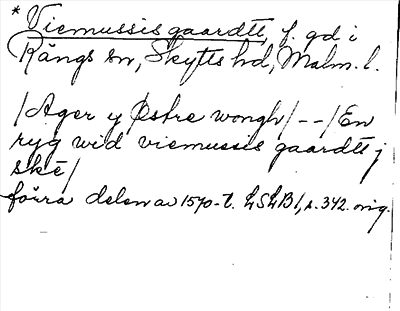 * Viemussis gaardtt, f. gd i
Rängs sn, Skytts hd, Malm. l.
/Ager y Østre wongh/ -- /En
ryg wid viemussis gaardtt j
ske/
förra delen av 1570-t. LSLB1, s. 342. orig.